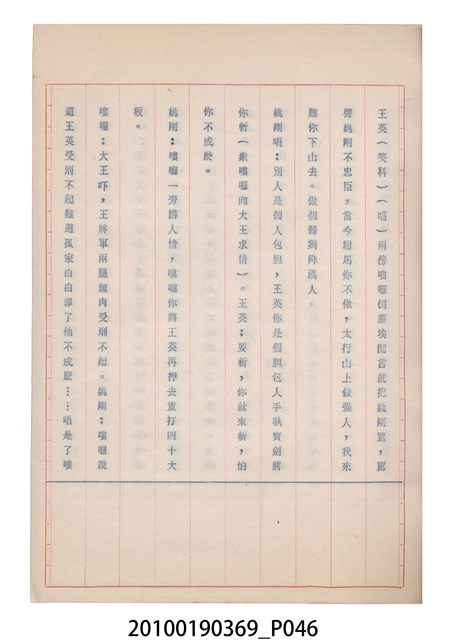 王英(笑科)(唱)兩傍嘍囉倒塵埃開言就把姚剛罵,罵
聲姚剛不忠臣,當今駙馬你不做,太行山上做强人,我來
難你下山去。做個歸剛降漢人。
姚剛唱:別人是個人包胆,王英你是個胆包人手執寶劍將
你斬(衆嘍囉向大王求情)。王英:要斬,你就來斬,怕
你不成麽。
姚剛:嘍囉一旁講人情,嘍囉你將王英再押去重打四十大
板。
嘍囉:大王吓,王將軍兩腿無肉受刑不起。姚剛:嘍囉說
道王英受刑不起難道孤家白白罪了他不成麽……唱是了嘍
20100190369_P046